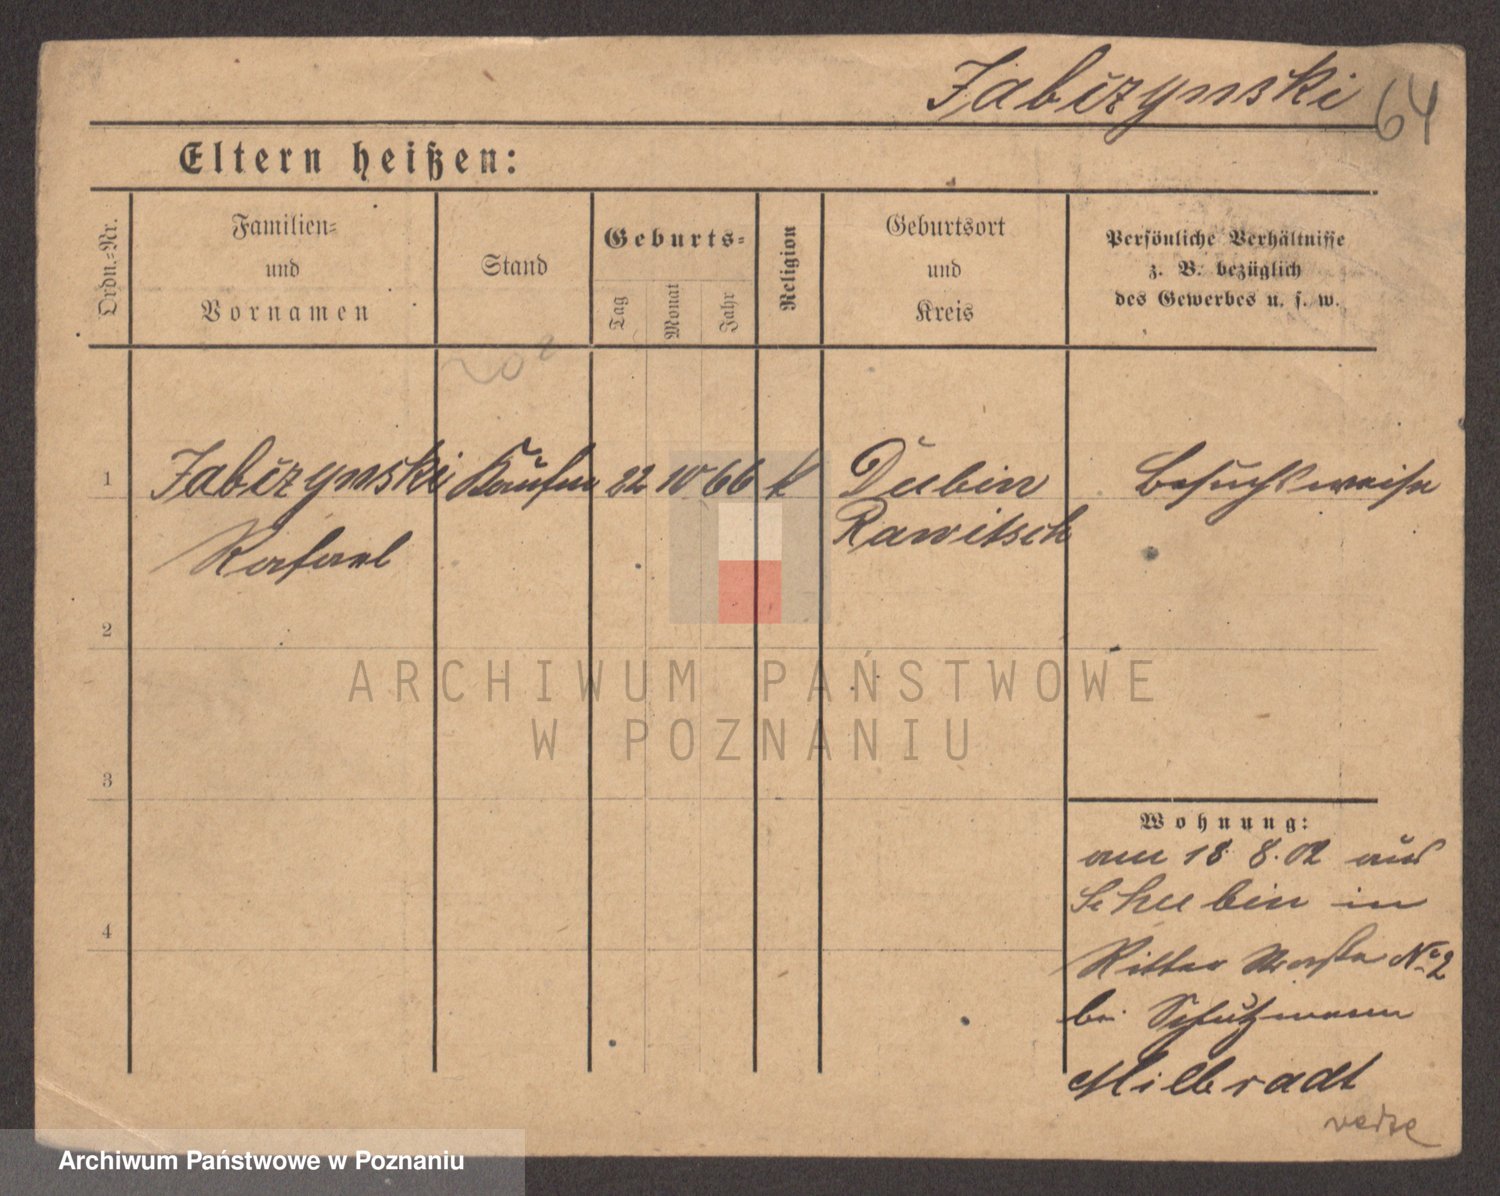 Jabczynski 64
Eltern heißen:
Ordn.-Nr.
Familien-
und
Vornamen
Stand
Geburts-
Tag
Monat
Jahr
Religion
Geburtsort
und
Kreis
Persönliche Verhältnisse
z. B. bezüglich
des Gewerbes u. s. w.
1 Jabczynski Kaufm 22 10 66 k Dubin Besuchsweise
Rafael Rawitsch
2
3
4
Wohnung:
am 18. 8. 02 aus
Schubin in
Ritter Straße No 2
bei Schutzmann
Milbradt
ARCHIWUM PAŃSTWOWE
W POZNANIU
Archiwum Państwowe w Poznaniu